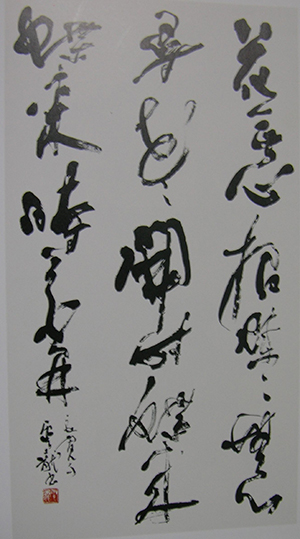 花無心招蝶ゝ無心
尋花ゝ開時蝶来
蝶来時花開